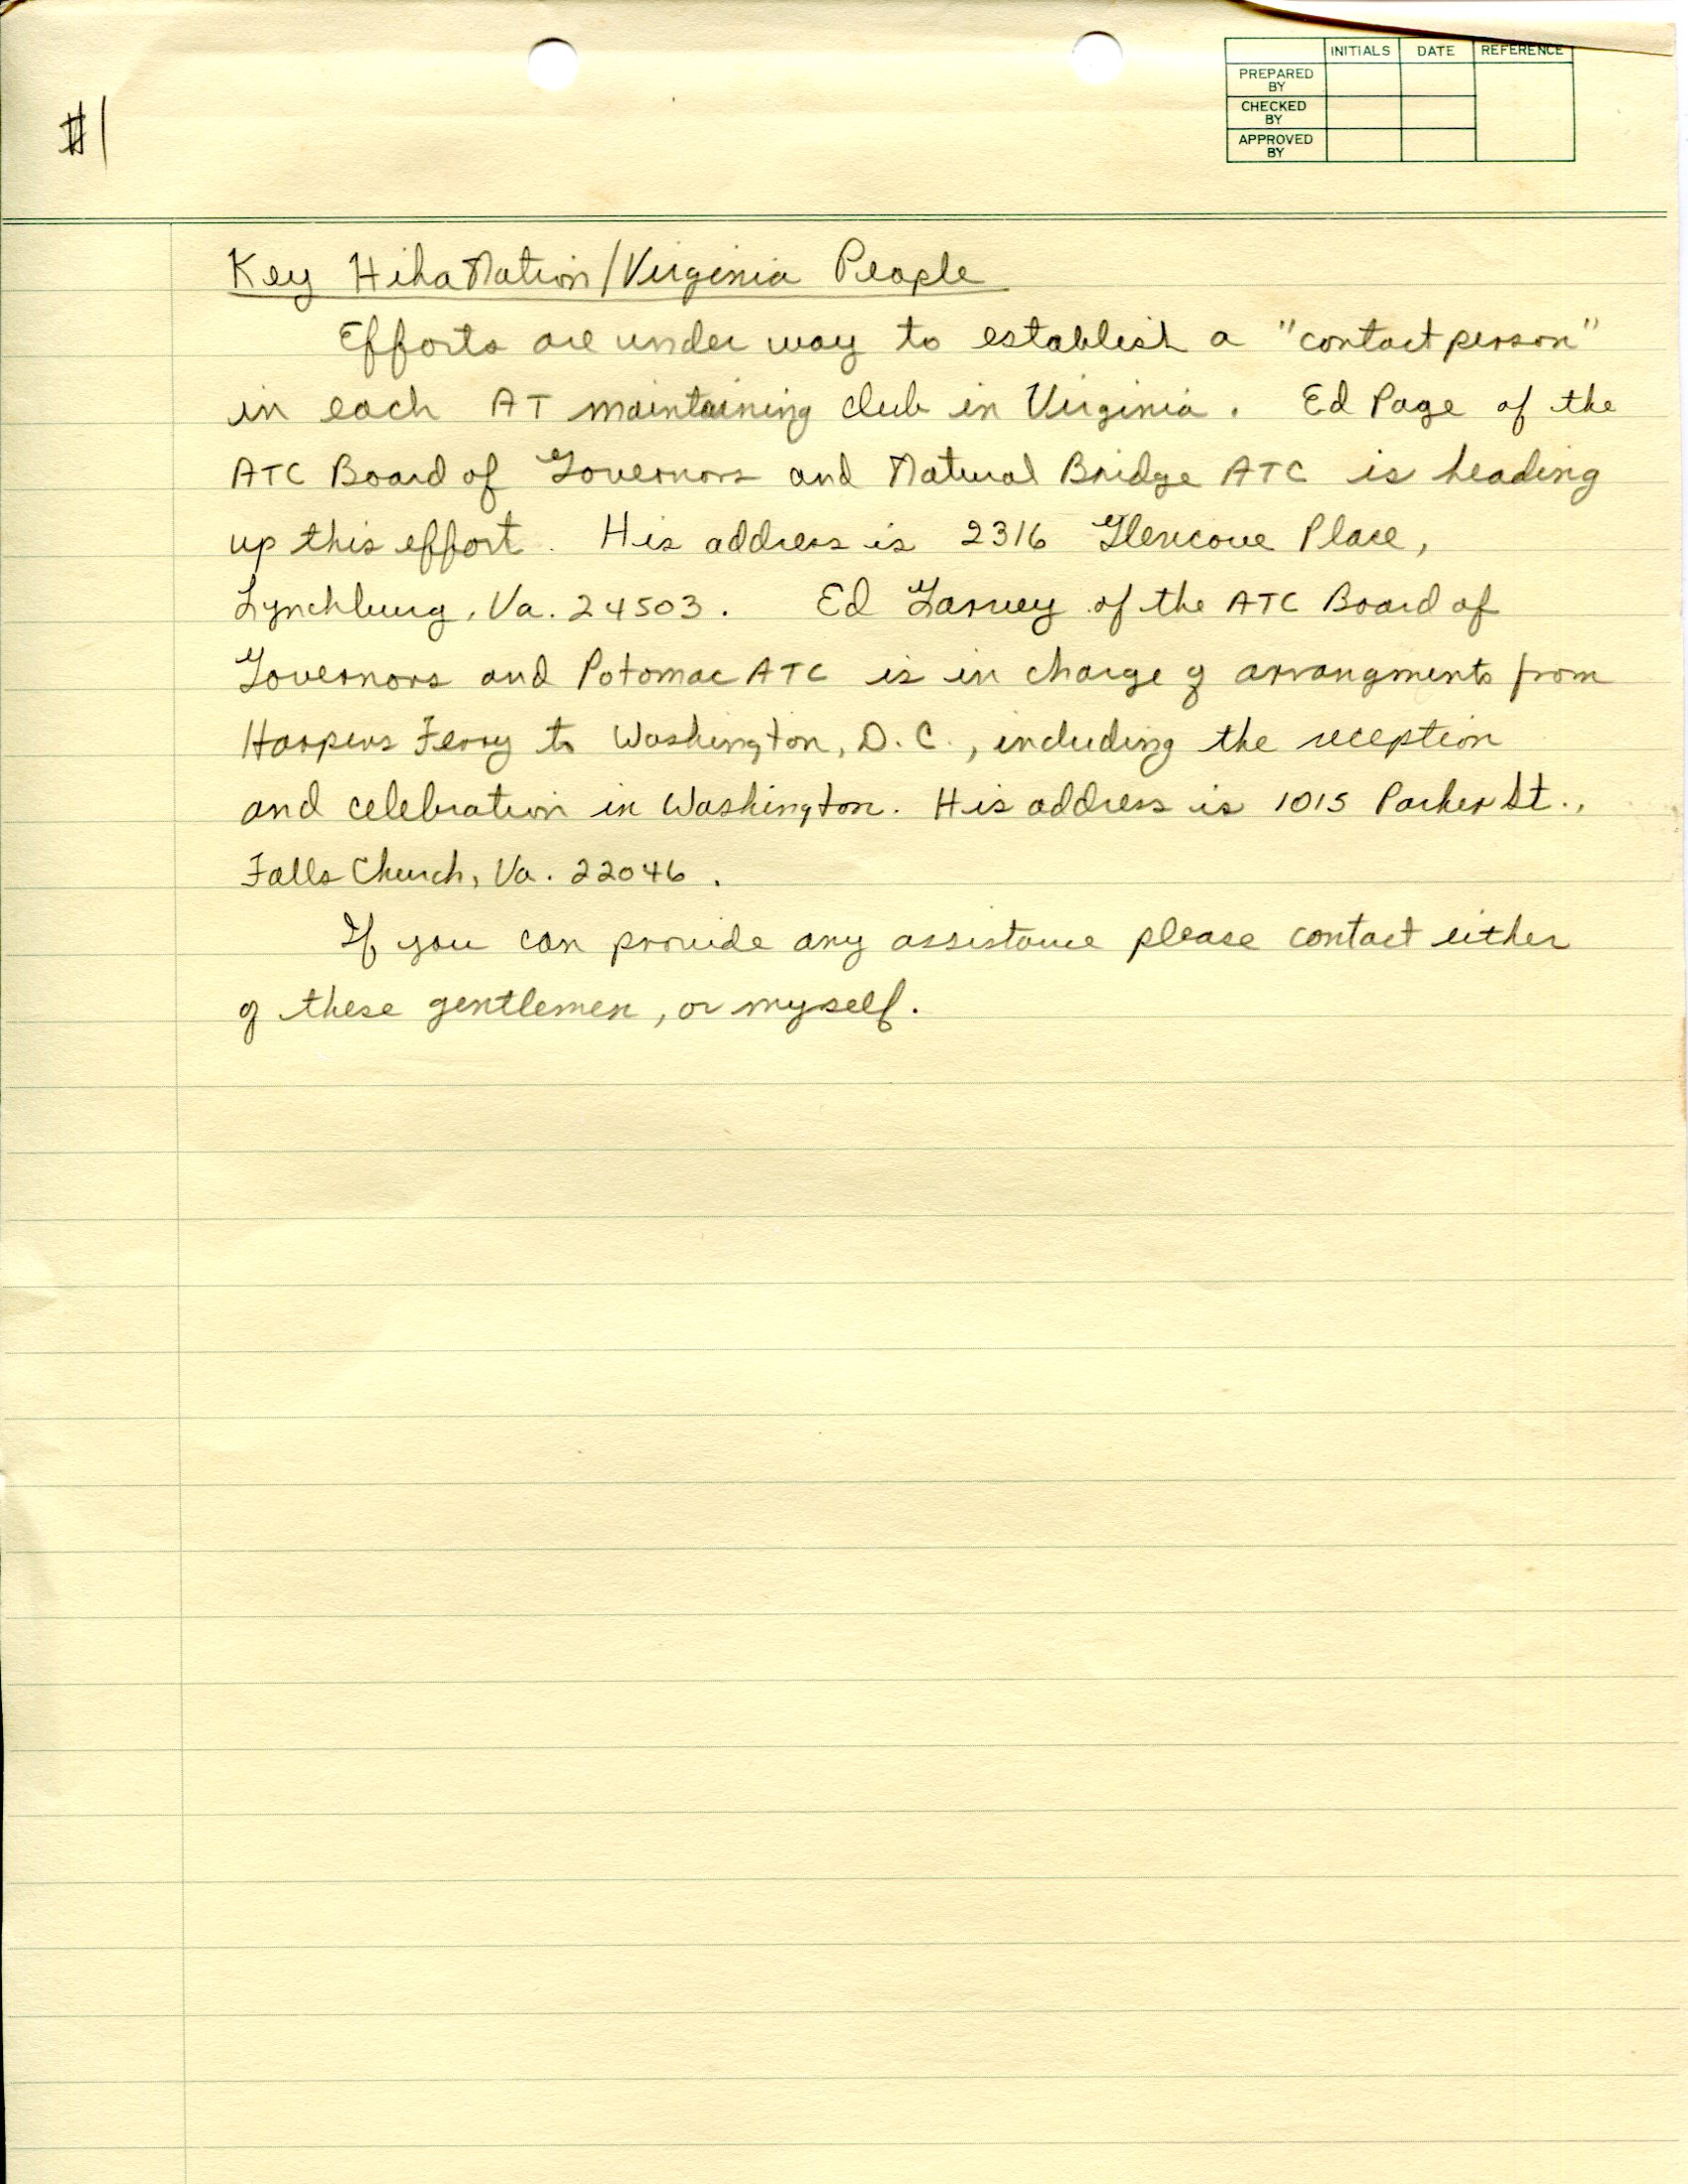 #1
INITIALS DATE REFERENCE
PREPARED BY
CHECKED BY
APPROVED BY
Key HikaNation/Virginia People
Efforts are under way to establish a "contact person"
in each AT maintaining club in Virginia. Ed Page of the
ATC Board of Governors and Natural Bridge ATC is heading
up this effort. His address is 2316 Glencove Place,
Lynchburg, Va. 24503. Ed Garvey of the ATC Board of
Governors and Potomac ATC is in charge of arrangments from
Harpers Ferry to Washington, D.C., including the reception
and celebration in Washington. His address is 1015 Parker St.,
Falls Church, Va. 22046.
If you can provide any assistance please contact either
of these gentlemen, or myself.